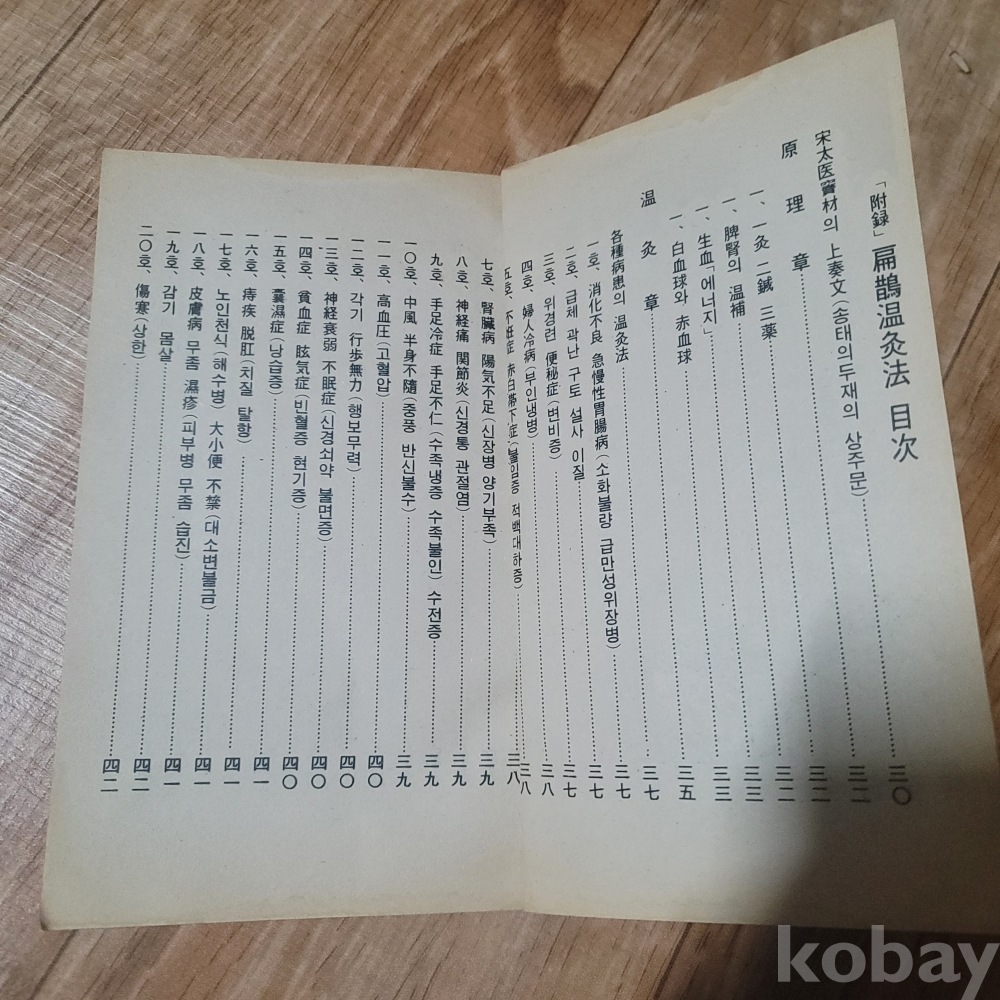 「附録」扁鵲温灸法 目次……三〇
宋太医竇材의 上奏文(송태의두재의 상주문)……三二
原理章……三二
一、一灸 二鍼 三薬……三二
一、脾腎의 温補……三三
一、生血「에너지」……三三
一、白血球와 赤血球……三五
温灸章……三七
各種病患의 温灸法……三七
一호、消化不良 急慢性胃腸病(소화불량 급만성위장병)……三七
二호、급체 곽난 구토 설사 이질……三七
三호、위경련 便秘症(변비증)……三八
四호、婦人冷病(부인냉병)……三八
五호、不妊症 赤白帯下症(불임증 적백대하증)……三八
七호、腎臓病 陽気不足(신장병 양기부족)……三九
八호、神経痛 関節炎(신경통 관절염)……三九
九호、手足冷症 手足不仁(수족냉증 수족불인) 수전증……三九
一〇호、中風 半身不随(중풍 반신불수)……三九
一一호、高血圧(고혈압)……四〇
一二호、각기 行歩無力(행보무력)……四〇
一三호、神経衰弱 不眠症(신경쇠약 불면증)……四〇
一四호、貧血症 眩気症(빈혈증 현기증)……四〇
一五호、囊濕症(낭습증)……四一
一六호、痔疾 脱肛(치질 탈항)……四一
一七호、노인천식(해수병) 大小便 不禁(대소변불금)……四一
一八호、皮膚病 무좀 濕疹(피부병 무좀 습진)……四一
一九호、감기 몸살……四二
二〇호、傷寒(상한)……四二
kobay